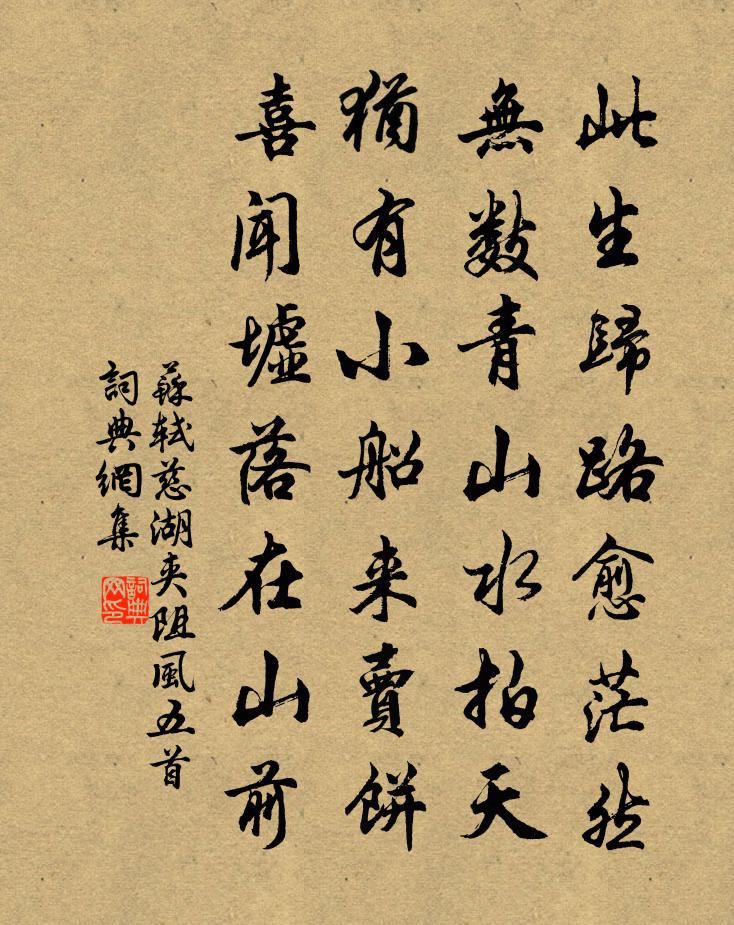 此生歸路愈茫然
無数青山水拍天
猶有小船来賣餅
喜聞墟落在山前
蘇軾慈湖夾阻風五首
詞典網集
詞典网印